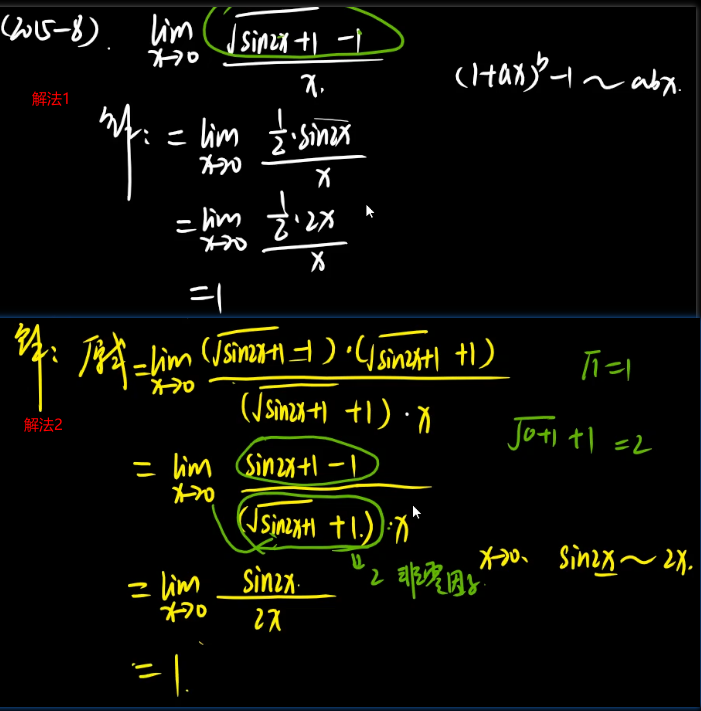 (2015-8). lim x→0 (√(sin2x+1) -1)/x.
(1+ax)^b -1 ~ abx.
解法1
解: = lim x→0 (1/2·sin2x)/x
= lim x→0 (1/2·2x)/x
=1
解: 原式 = lim x→0 ((√(sin2x+1) -1)·(√(sin2x+1) +1))/((√(sin2x+1) +1)·x)
√1=1
解法2
√(0+1) +1 =2
= lim x→0 (sin2x+1-1)/((√(sin2x+1) +1.)·x)
2 非零因子.
x→0、 sin2x ~ 2x.
= lim x→0 sin2x/2x
= 1.